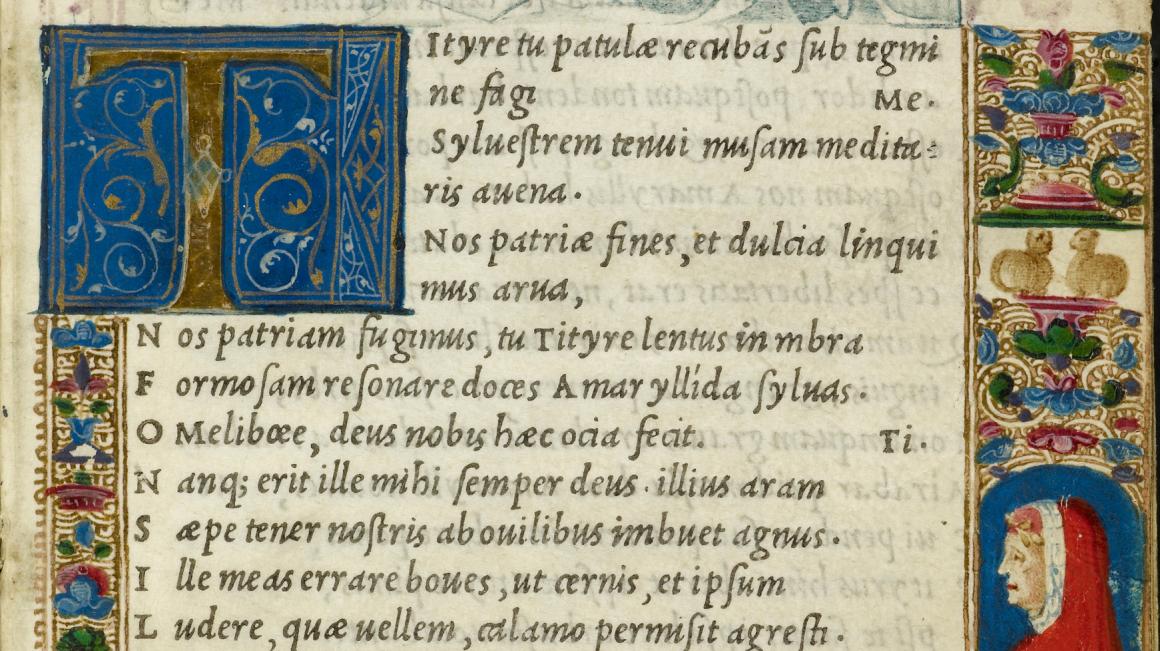 TItyre tu patulæ recubãs ſub tegmi
ne fagi Me.
Sylueſtrem tenui muſam medita-
ris auena.
Nos patriæ fines, et dulcia linqui
mus arua,
N os patriam fugimus, tu Tityre lentus in mbra
F ormoſam reſonare doces Amaryllida ſyluas.
O Meliboee, deus nobis hæc ocia fecit. Ti.
N anq; erit ille mihi ſemper deus. illius aram
S æpe tener noſtris ab ouilibus imbuet agnus.
I lle meas errare boues, ut cernis, et ipſum
L udere, quæ uellem, calamo permiſit agreſti.